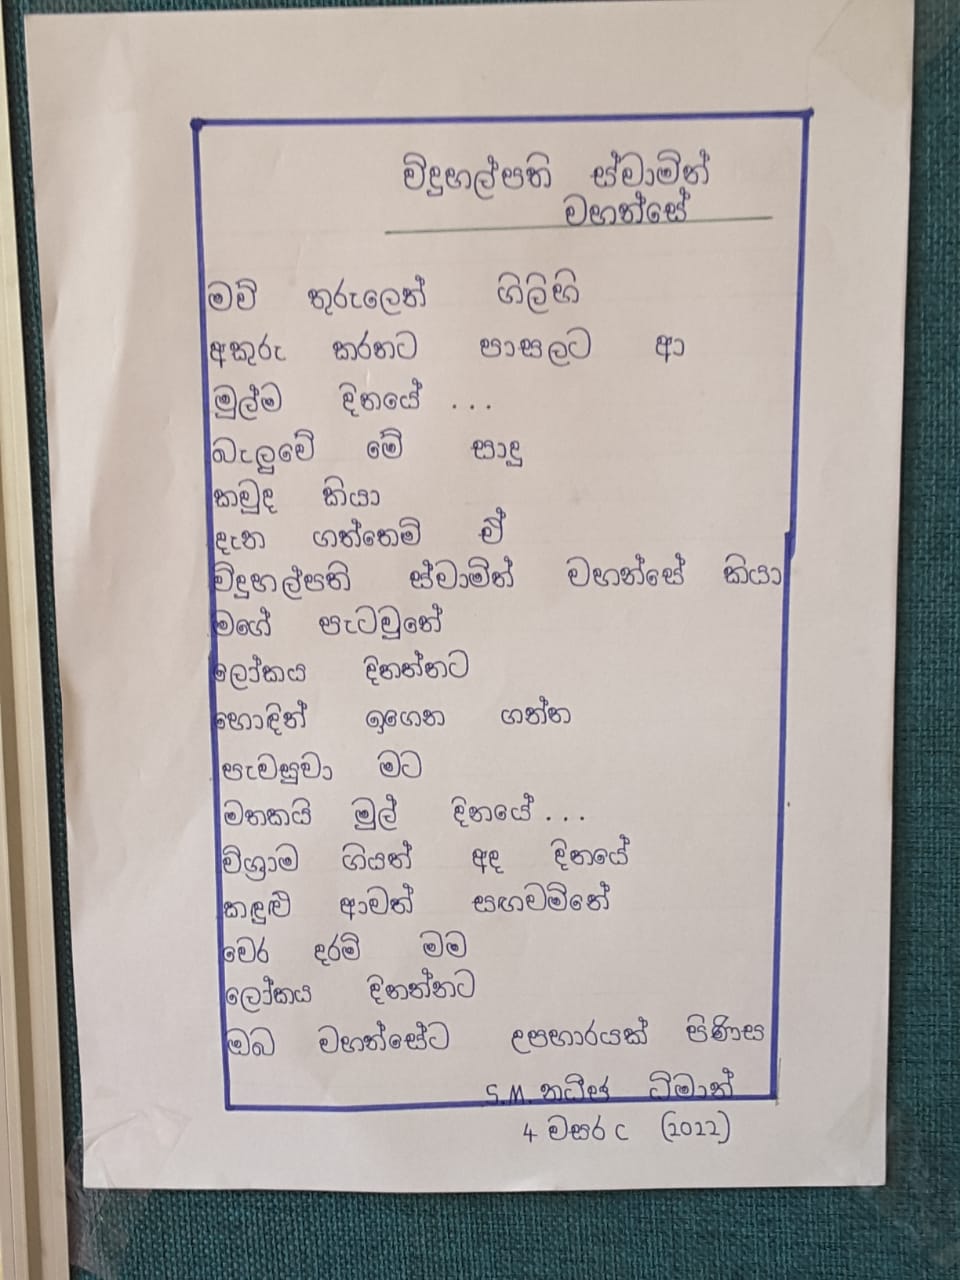 විදුහල්පති ස්වාමින්
වහන්සේ
මව් තුරුලෙන් ගිලිහී
අකුරු කරනට පාසලට ආ
මුල්ම දිනයේ ...
බැලුවේ මේ සාදු
කවුද කියා
දැන ගත්තෙමි ඒ
විදුහල්පති ස්වාමින් වහන්සේ කියා
මගේ පැටවුනේ
ලෝකය දිනන්නට
හොඳින් ඉගෙන ගන්න
පැවසුවා මට
මතකයි මුල් දිනයේ ...
විශ්‍රාම ගියත් අද දිනයේ
කඳුළු ආවත් සඟවමිනේ
වෙර දරමි මම
ලෝකය දිනන්නට
ඔබ වහන්සේට උපහාරයක් පිණිස
S.M. විමාන්
4 වසර C (2022)